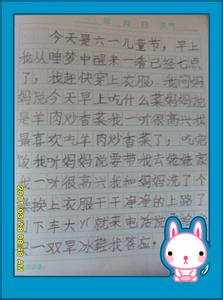 月 日
今天是六一儿童节，早上
我从睡梦中醒来一看已经七点
了，我赶快穿上衣服，我问妈
妈说今天早上吃什么菜妈妈说
是羊肉炒香菜我一听很高兴我
最喜欢吃羊肉炒香菜了，吃完
饭我听妈妈说要带我去姥姥家
我一听很高兴我和妈妈洗了个
澡换上衣服干干净净的上路了
下车大 就来电话说给
一双旱冰鞋我答应